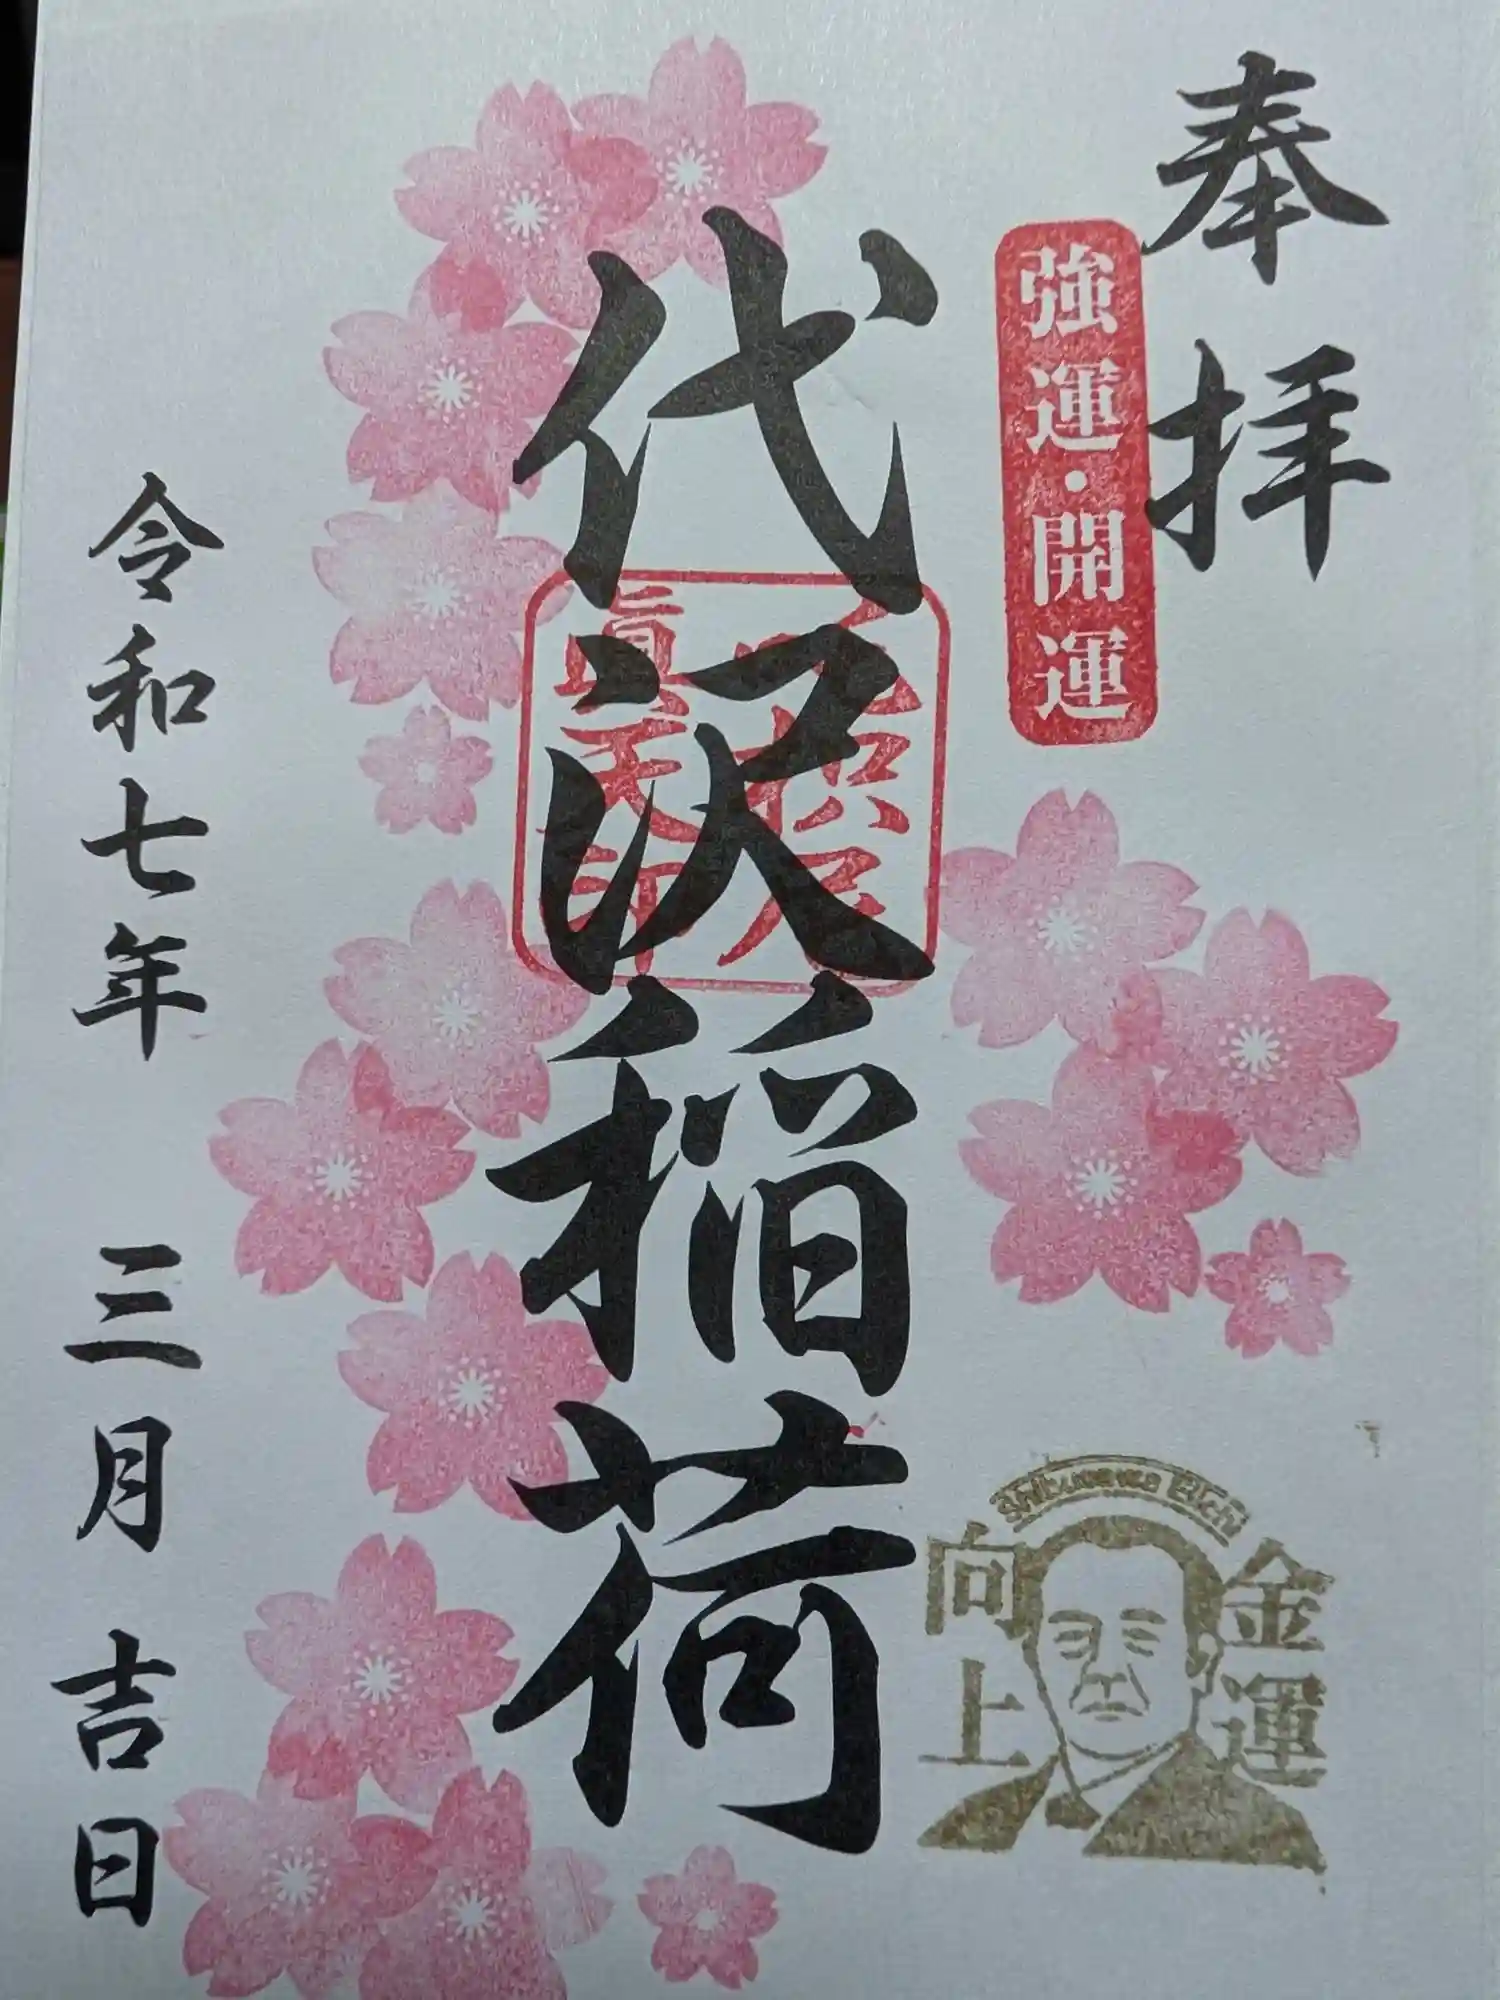 奉拝
強運・開運
代沢稲荷
Shibusawa Eiichi
金運
向上
令和七年 三月 吉日